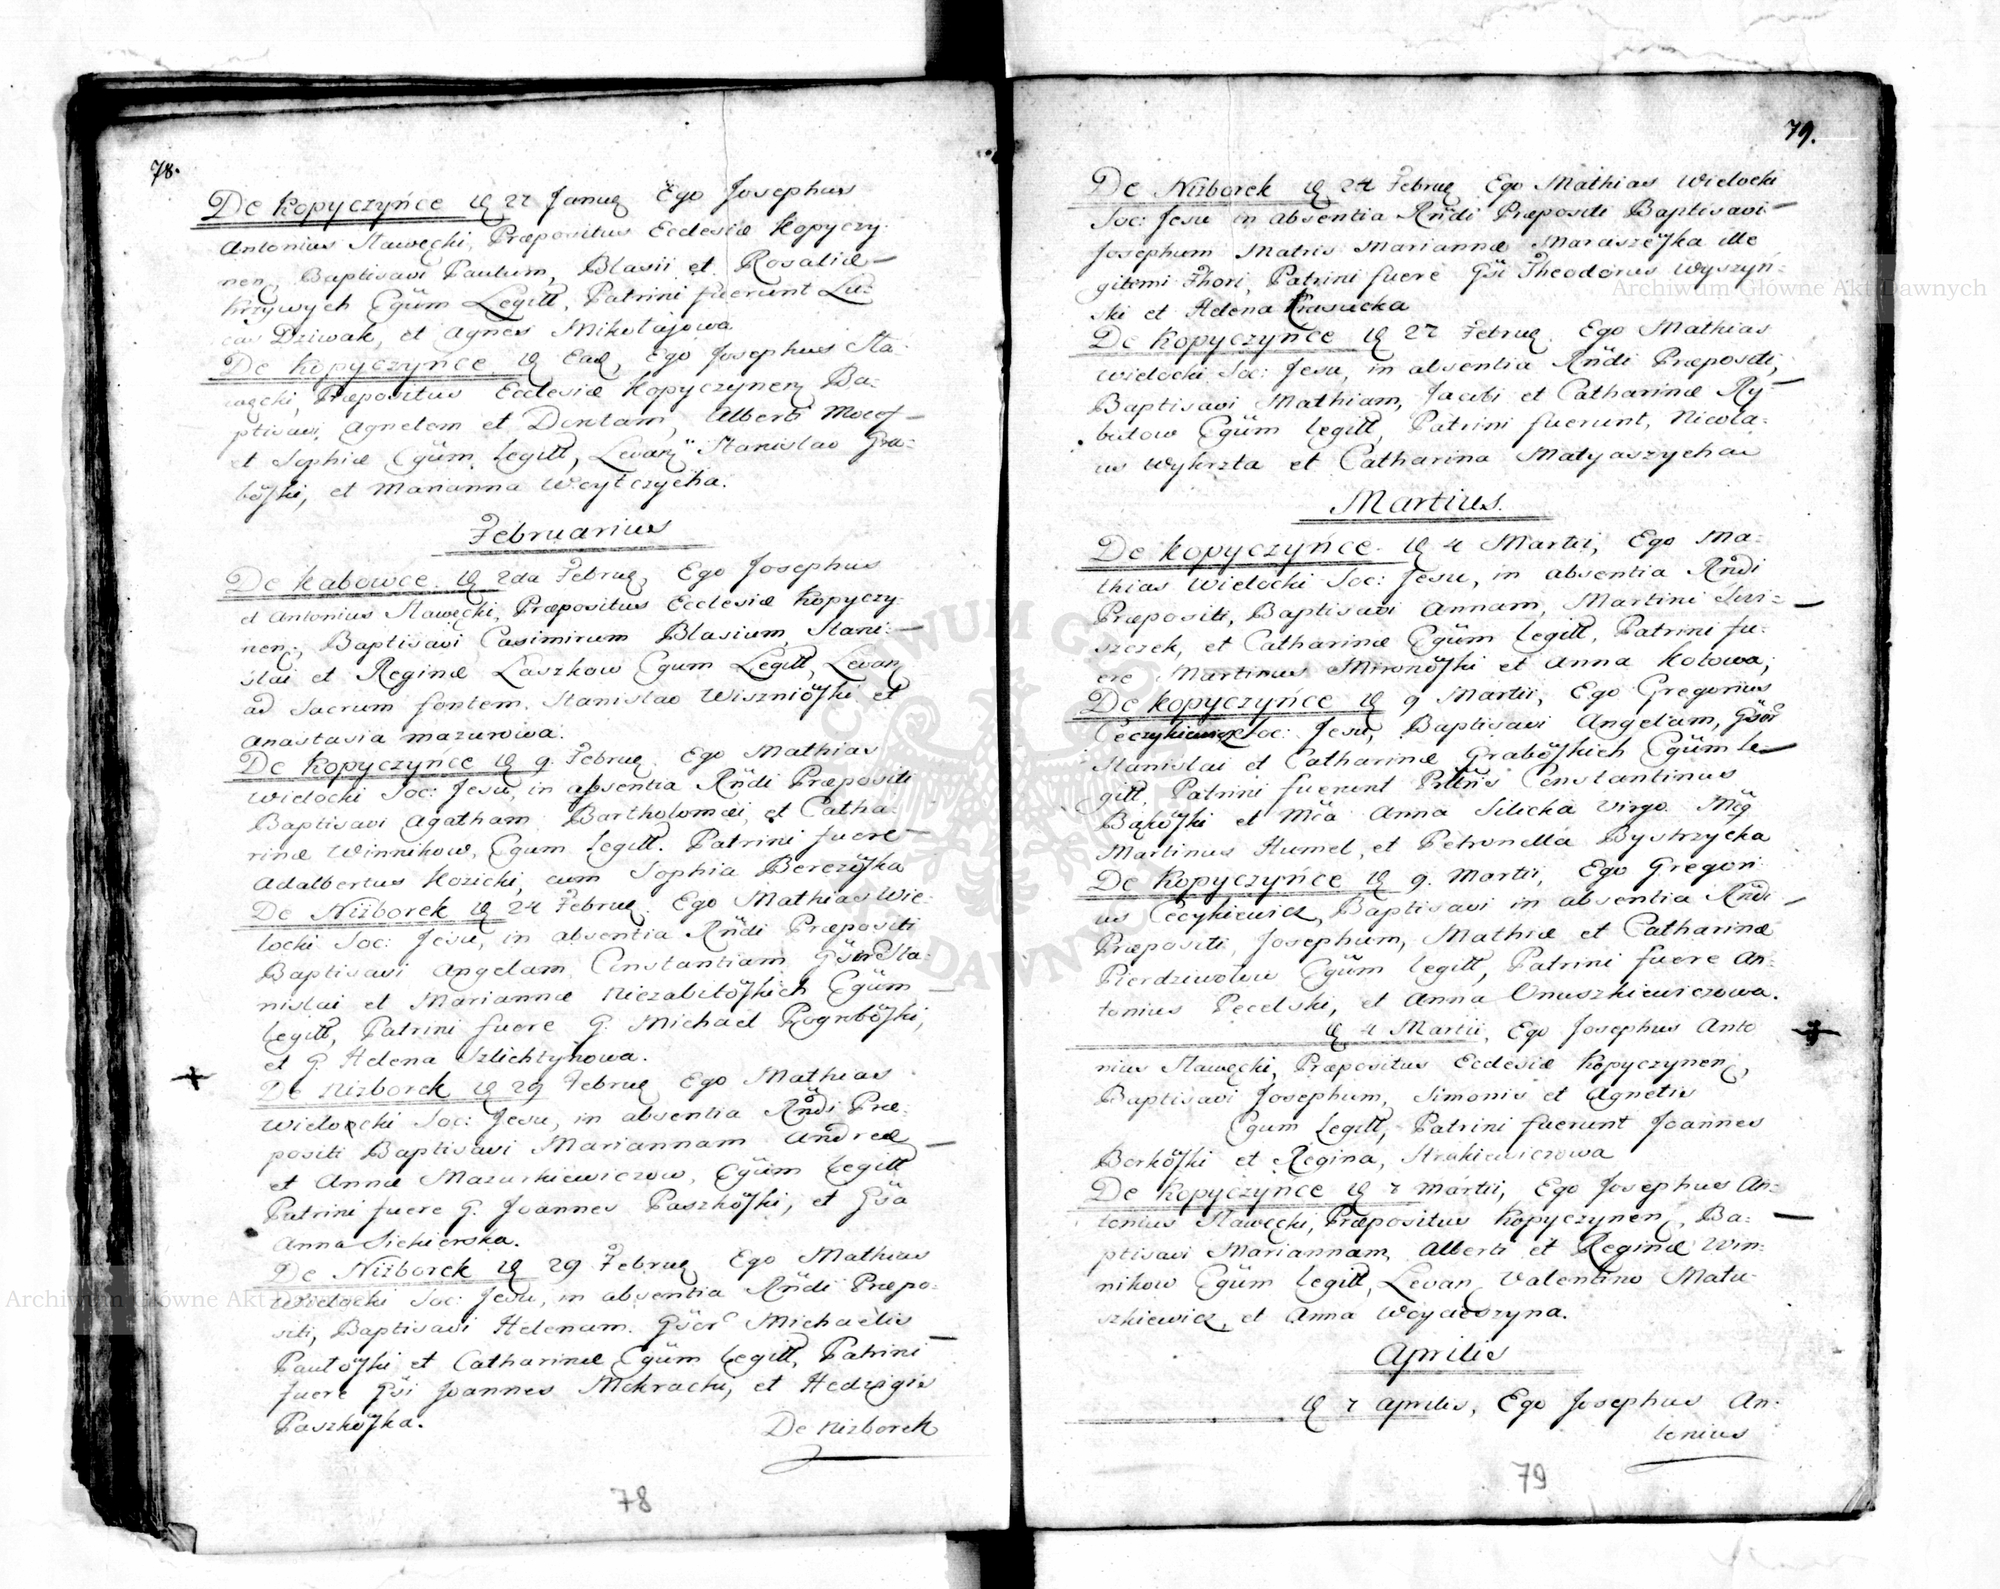 78.
De Kopyczyńce 27 Janu Ego Josephus
Antonius Sławęcki, Præpositus Ecclesiæ Kopyczy:
nen, Baptisavi Paulum, Blasii et Rosaliæ
Krzywych Cgüm Legitt, Patrini fuerunt Lu:
cas Dziwak, et Agnes Mikołajowa
De Kopyczyńce Ead, Ego Josephus Sła:
węcki, Præpositus Ecclesiæ Kopyczynen Ba:
ptisavi, Agnetem et Agnetem
et Sophiæ Cgüm Legitt, Levan Stanislao Gra:
boski, et Marianna Woytczycha.
Februarius
De Kabowce 2da Febru, Ego Josephus
et Antonius Sławęcki, Præpositus Ecclesiæ Kopyczy:
nen, Baptisavi Casimirum Blasium, Stani:
slai et Reginæ Laszkow Cgum Legitt, Levan
ad Sacrum fontem, Stanislao Wisznioski et
Anastasia Mazurowa.
De Kopyczyńce 9 Febru Ego Mathias
Wielocki Soc: Jesu, in absentia Rndi Præpositi
Baptisavi Agatham Bartholomæi, et Catha:
rinæ Winnikow, Cgum Legitt. Patrini fuere
Adalbertus Kozicki, cum Sophia Berezoska
De Niżborek 24 Febru Ego Mathias Wie:
locki Soc: Jesu, in absentia Rndi Præpositi
Baptisavi Angelam Constantiam Gsor Sta:
nislai et Mariannæ Niezabitoskich Cgüm
Legitt, Patrini fuere G. Michael
et G Helena Szlichtynowa.
De Nizborek 29 Febru Ego Mathias
Wielocki Soc: Jesu, in absentia Rndi Præ:
positi Baptisavi Mariannam Andreæ
et Annæ Mazurkiewiczow, Cgüm Legitt
Patrini fuere G. Joannes Paszkoski, et Gsa
Anna Siekierska.
De Niżborek 29 Febru Ego Mathias
Wielocki Soc: Jesu, in absentia Rndi Præpo:
siti, Baptisavi Helenam. Gsor Michaelis
Pautoski et Catharinæ Cgüm Legitt, Patrini
fuere Gsi Joannes et Hedvigis
Paszkoska.
De Nizborek
78
79.
De Niżborek 24 Febru Ego Mathias Wielocki
Soc: Jesu in absentia Rndi Præpositi Baptisavi
Josephum Matris Mariannæ Maraszeska ille
gitimi Thori, Patrini fuere Gsi Theodorus Wyszyń:
ski et Helena Krasucka
De Kopyczyńce 27 Febru Ego Mathias
Wielocki Soc: Jesu, in absentia Rndi Præpositi,
Baptisavi Mathiam, Jacobi et Catharinæ Ry
butow Cgüm Legitt, Patrini fuerunt, Nicola:
us Wykrzta et Catharina Matyaszycha
Martius.
De Kopyczyńce 4 Martii, Ego Ma:
thias Wielocki Soc: Jesu, in absentia Rndi
Præpositi, Baptisavi Annam, Martini
szczek, et Catharinæ Cgüm Legitt, Patrini fu:
ere Martinus Mironoski et Anna Kotowa,
De Kopyczyńce 9 Martii, Ego Gregorius
Ceczykiewicz Soc: Jesu, Baptisavi Angelam, Gsor
Stanislai et Catharinæ Graboskich Cgüm Le
gitt, Patrini fuerunt Constantinus
Bakoski et Anna Silicka Virgo
Martinus Humel, et Petronella Bystrzycka
De Kopyczyńce 9. Martii, Ego Gregori
us Cecykiewicz, Baptisavi in absentia Rndi
Præpositi, Josephum, Mathiæ et Catharinæ
Pierdziwolow Cgüm Legitt, Patrini fuere An:
tonius Pecelski, et Anna Onuszkiewiczowa.
4 Martii, Ego Josephus Anto
nius Sławęcki, Præpositus Ecclesiæ Kopyczynen,
Baptisavi Josephum, Simonis et Agnetis
Cgum Legitt, Patrini fuerunt Joannes
Borkoski et Regina, Strakiewiczowa
De Kopyczyńce 7 Martii, Ego Josephus An:
tonius Sławęcki, Præpositus Kopyczynen, Ba:
ptisavi Mariannam, Alberti et Reginæ Win:
nikow Cgüm Legitt, Levan Valentino Matu:
szkiewicz, et Anna
Aprilis
7 Aprilis, Ego Josephus An:
tonius
79
Archiwum Główne Akt Dawnych
Archiwum Główne Akt Dawnych